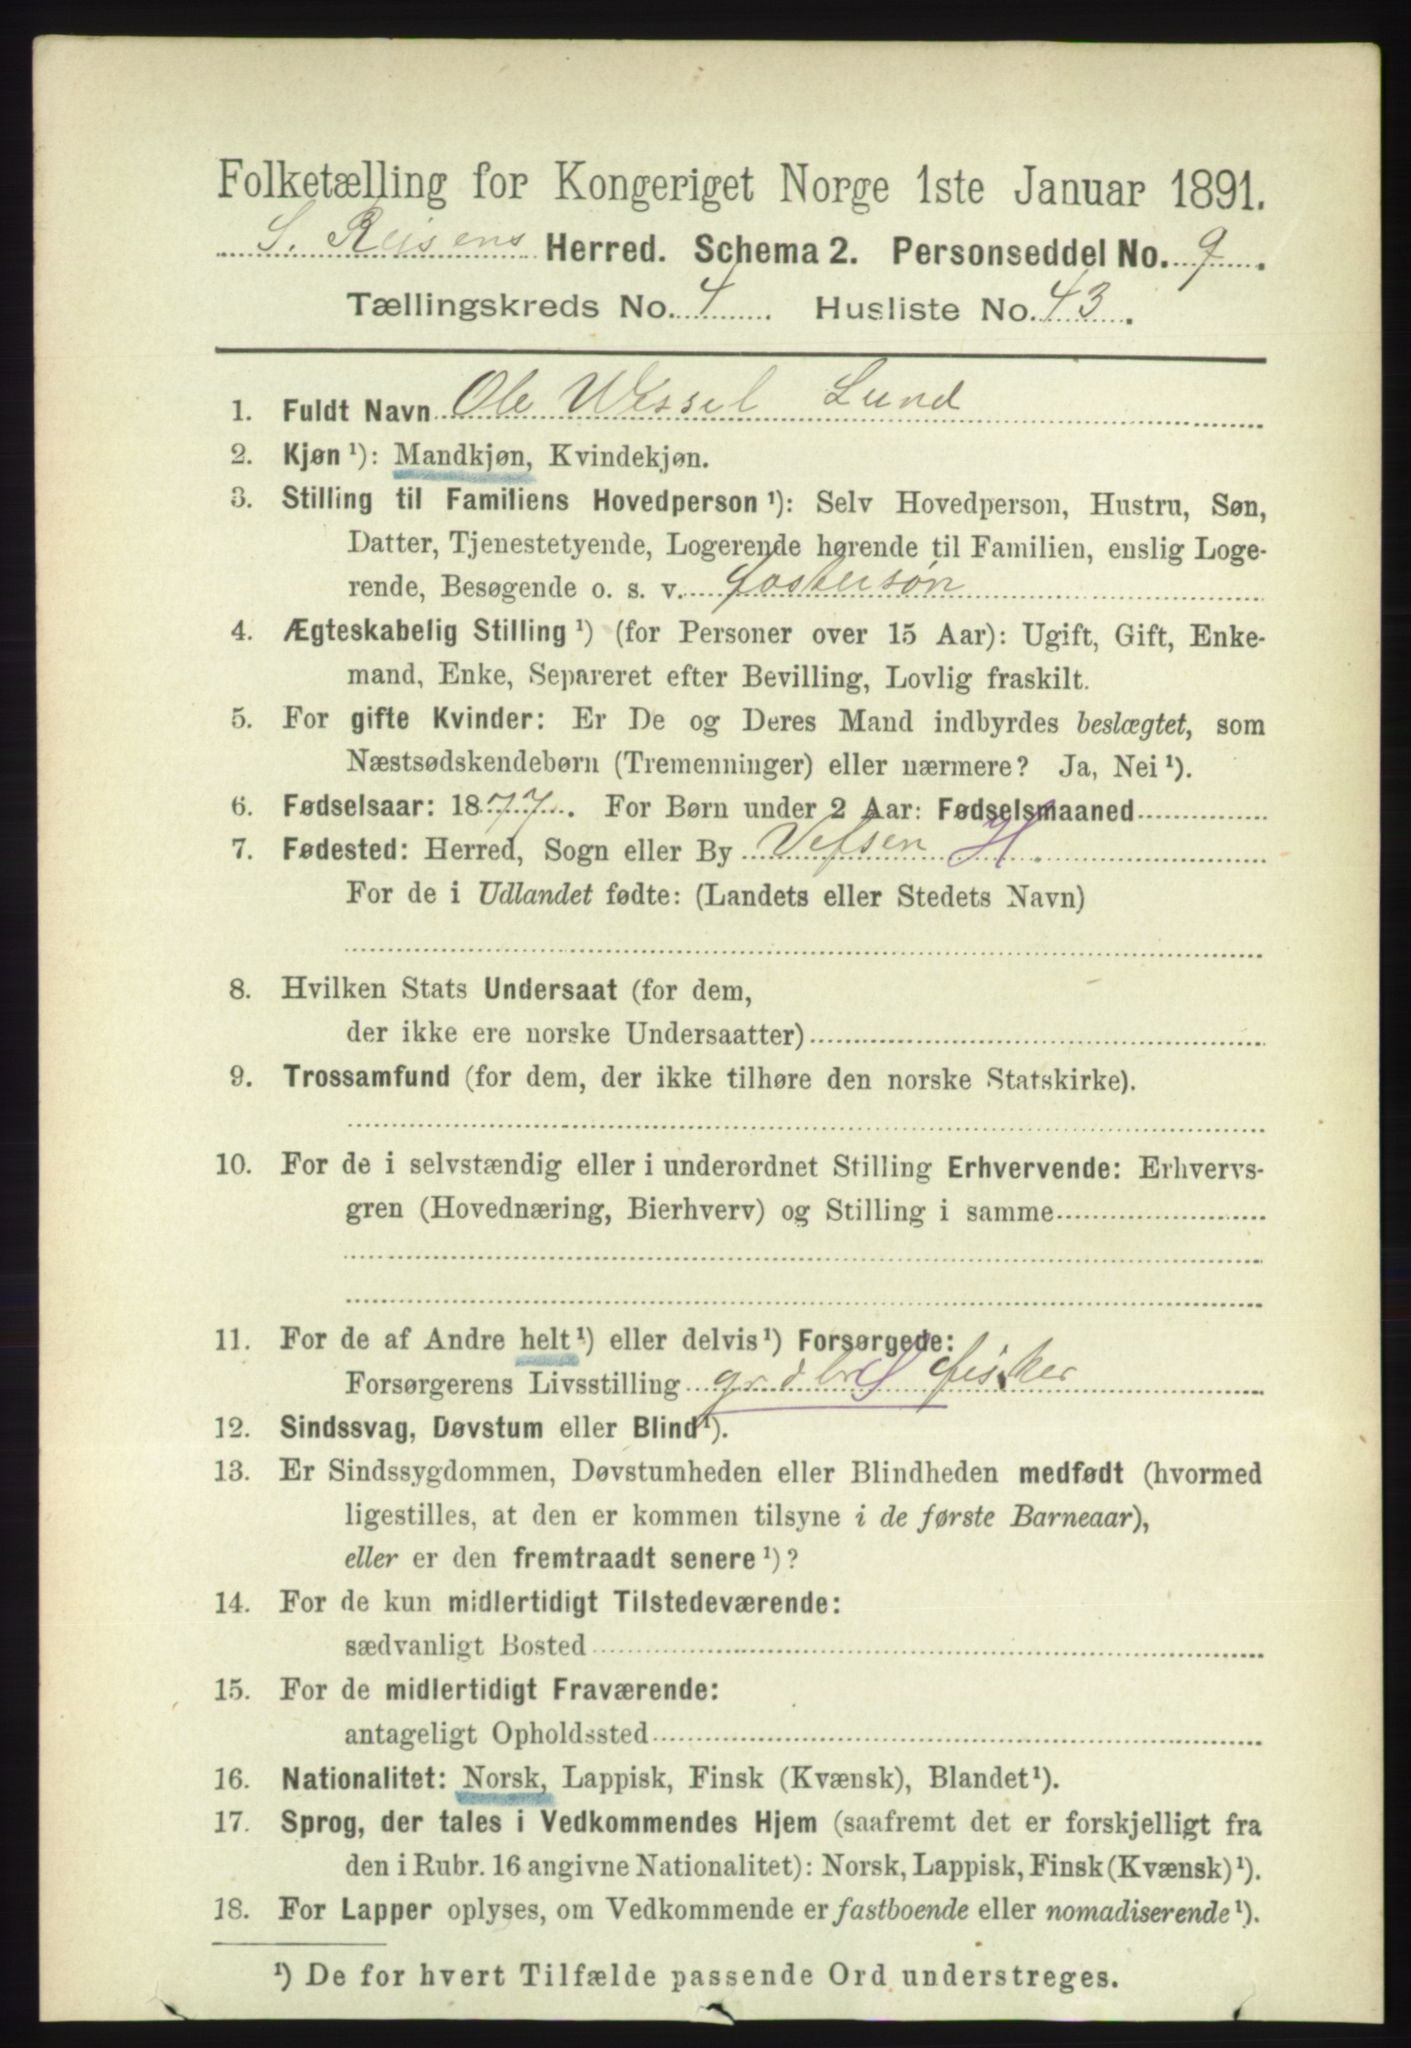 Folketælling for Kongeriget Norge 1ste Januar 1891.
S. Reisens Herred. Schema 2. Personseddel No. 9.
Tællingskreds No. 4. Husliste No. 43.
1. Fuldt Navn Ole Wessel Lund
2. Kjøn ¹): Mandkjøn, Kvindekjøn.
3. Stilling til Familiens Hovedperson ¹): Selv Hovedperson, Hustru, Søn,
Datter, Tjenestetyende, Logerende hørende til Familien, enslig Loge-
rende, Besøgende o. s. v. fostersøn
4. Ægteskabelig Stilling ¹) (for Personer over 15 Aar): Ugift, Gift, Enke-
mand, Enke, Separeret efter Bevilling, Lovlig fraskilt.
5. For gifte Kvinder: Er De og Deres Mand indbyrdes beslægtet, som
Næstsødskendebørn (Tremenninger) eller nærmere? Ja, Nei ¹).
6. Fødselsaar: 1877. For Børn under 2 Aar: Fødselsmaaned
7. Fødested: Herred, Sogn eller By Vefsen H.
For de i Udlandet fødte: (Landets eller Stedets Navn)
8. Hvilken Stats Undersaat (for dem,
der ikke ere norske Undersaatter)
9. Trossamfund (for dem, der ikke tilhøre den norske Statskirke).
10. For de i selvstændig eller i underordnet Stilling Erhvervende: Erhvervs-
gren (Hovednæring, Bierhverv) og Stilling i samme
11. For de af Andre helt ¹) eller delvis ¹) Forsørgede:
Forsørgerens Livsstilling fisker
12. Sindssvag, Døvstum eller Blind ¹).
13. Er Sindssygdommen, Døvstumheden eller Blindheden medfødt (hvormed
ligestilles, at den er kommen tilsyne i de første Barneaar),
eller er den fremtraadt senere ¹)?
14. For de kun midlertidigt Tilstedeværende:
sædvanligt Bosted
15. For de midlertidigt Fraværende:
antageligt Opholdssted
16. Nationalitet: Norsk, Lappisk, Finsk (Kvænsk), Blandet ¹).
17. Sprog, der tales i Vedkommendes Hjem (saafremt det er forskjelligt fra
den i Rubr. 16 angivne Nationalitet): Norsk, Lappisk, Finsk (Kvænsk) ¹).
18. For Lapper oplyses, om Vedkommende er fastboende eller nomadiserende ¹).
¹) De for hvert Tilfælde passende Ord understreges.